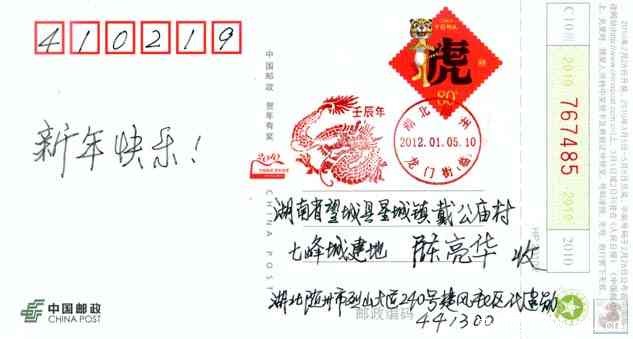 410219
新年快乐！
中国邮政 贺年有奖
CHINA POST
虎
80
壬辰年
2012
湖北
州
2012.01.05.10
龙门街(临)
湖南省望城县星城镇戴公庙村
七峰城建地 陈亮华 收
湖北随州市烈山大道240号楚风社区代建勋
邮政编码
441300
中国邮政
CHINA POST
2010
767485
2010
2010